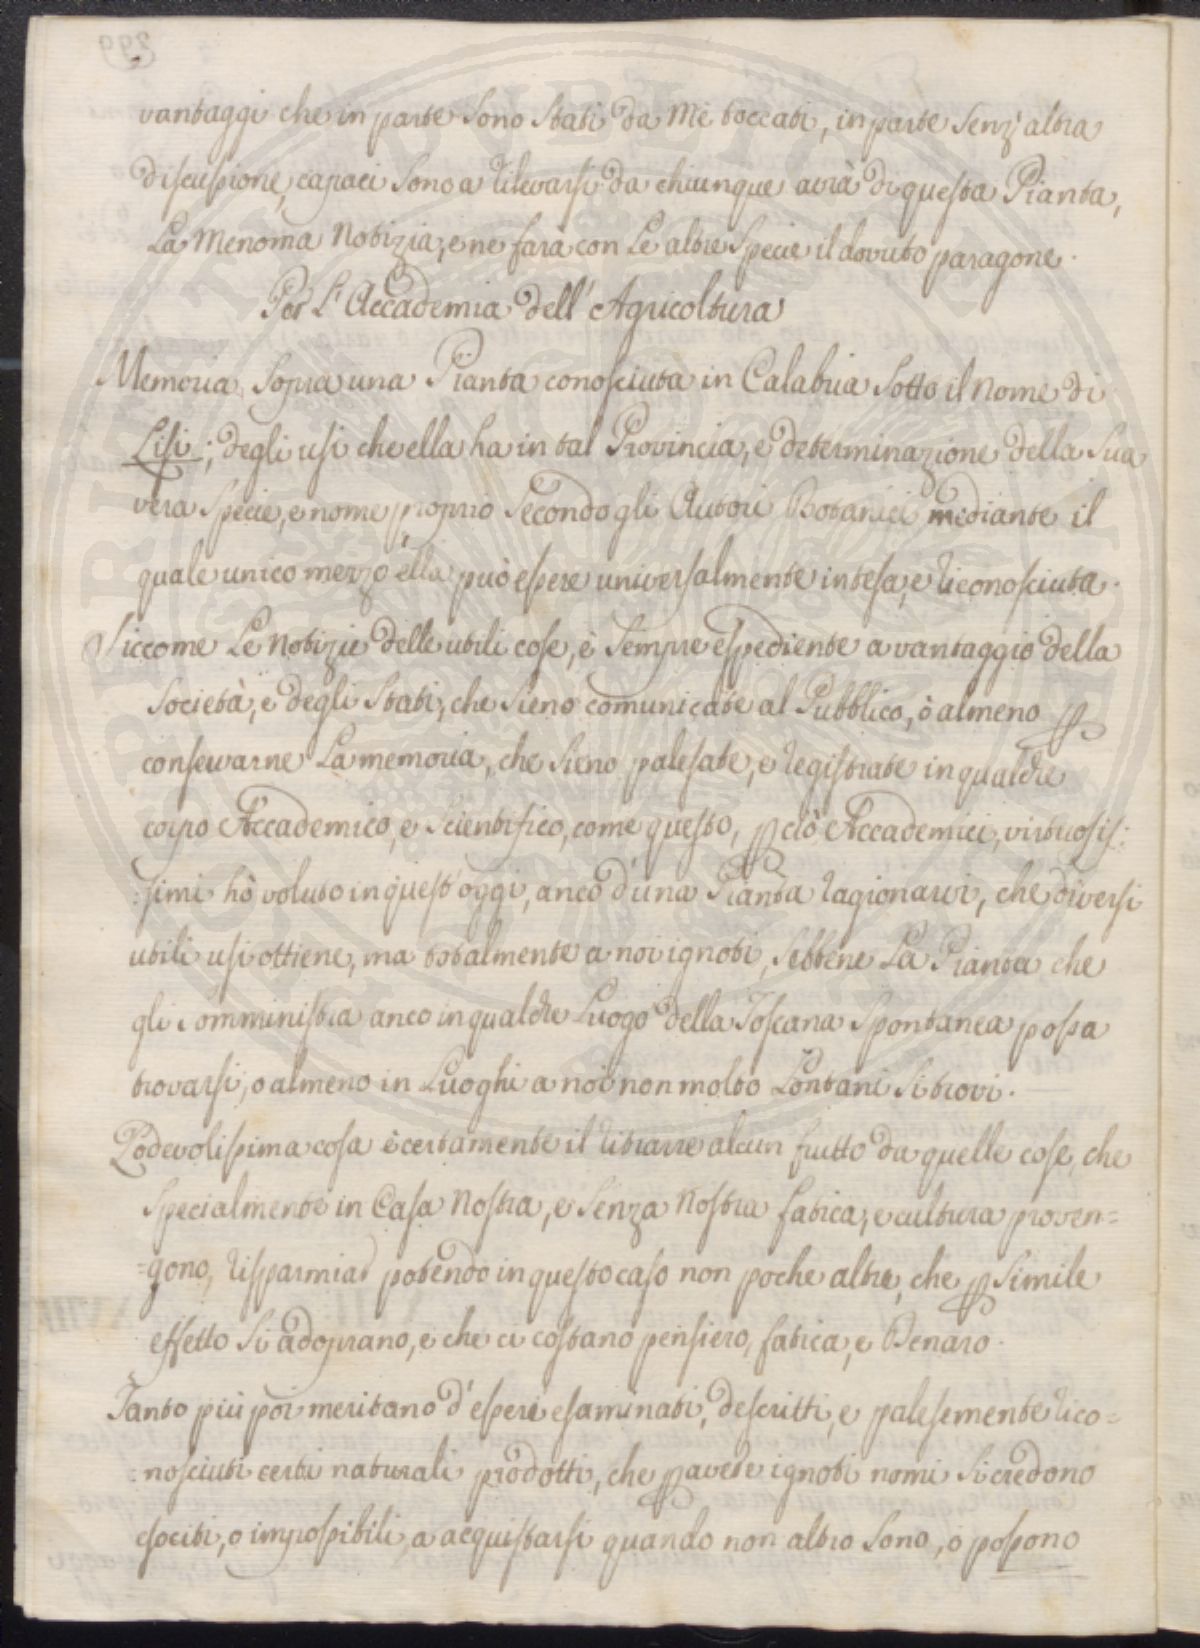 vantaggi che in parte sono stati da me toccati, in parte senz'altra
discussione, capaci sono a rilevarsi da chiunque avrà di questa Pianta,
La Menoma Notizia, e ne farà con Le altre specie il dovuto paragone.
Per L'Accademia dell'Agricoltura
Memoria, sopra una Pianta conosciuta in Calabria sotto il nome di
Lisi; degli usi che ella ha in tal Provincia, e determinazione della sua
vera specie, e nome proprio secondo gli Autori Botanici mediante il
quale unico mezzo ella può essere universalmente intesa, e riconosciuta.
Siccome Le Notizie delle utili cose, è sempre espediente a vantaggio della
società, e degli stati, che sieno comunicate al Pubblico, ò almeno p
conservarne La memoria, che sieno palesate, e registrate in qualche
corpo Accademico, e scientifico, come questo, pciò Accademici, virtuosis:
:simi hò voluto in quest'oggi, anco d'una Pianta ragionarvi, che diversi
utili usi ottiene, ma totalmente a noi ignoti, sebbene La Pianta che
gli somministra anco in qualche Luogo della Toscana spontanea possa
trovarsi, o almeno in Luoghi a noi non molto Lontani si trovi.
Lodevolissima cosa è certamente il ritrarre alcun frutto da quelle cose, che
specialmente in Casa Nostra, e senza Nostra fatica, e cultura proven=
=gono, risparmiar potendo in questo caso non poche altre, che p simile
effetto si adoprano, e che ci costano pensiero, fatica, e Denaro.
Tanto più poi meritano d'essere esaminati, descritti, e palesemente rico=
:nosciuti certi naturali prodotti, che p avere ignoti nomi si credono
esociti, o impossibili, a acquistarsi quando non altro sono, o possono